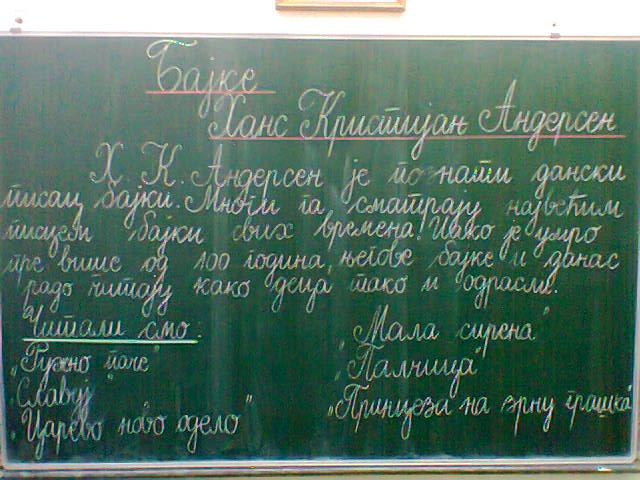 Бајке
Ханс Кристијан Андерсен
Х. К. Андерсен је познати дански
писац бајки. Многи га сматрају највећим
писцем бајки свих времена. Иако је умро
пре више од 100 година, његове бајке и данас
радо читају како деца тако и одрасли.
Читали смо:
„Ружно паче"
„Славуј"
„Царево ново одело"
„Мала сирена"
„Палчица"
„Принцеза на зрну грашка"